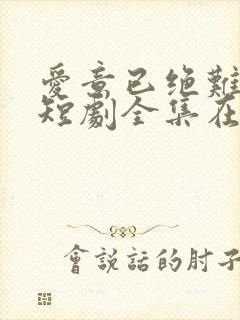 愛意已绝難
短劇全集在
會說話的肘子